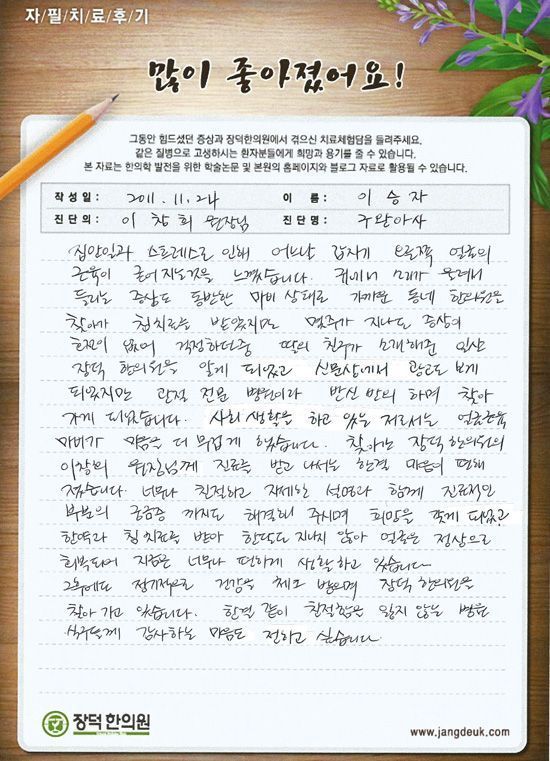 자/필/치/료/후/기
많이 좋아졌어요!
그동안 힘드셨던 증상과 장덕한의원에서 겪으신 치료체험담을 들려주세요.
같은 질병으로 고생하시는 환자분들에게 희망과 용기를 줄 수 있습니다.
본 자료는 한의학 발전을 위한 학술논문 및 본원의 홈페이지와 블로그 자료로 활용될 수 있습니다.
작성일: 2011.11.24 이 름: 이승자
진단의: 이창희 원장님 진단명: 구안와사
집안일과 스트레스로 인해 어느날 갑자기 오른쪽 얼굴의
근육이 굳어지는것을 느꼈습니다. 귀에서 소리가 울려서
들리는 증상도 동반한 마비 상태로 가까운 동네 한의원을
찾아가 침치료는 받았지만 몇주가 지나도 증상의
호전이 없어 걱정하던중 딸의 친구가 소개해준 일산
장덕 한의원을 알게 되었고 신문상에서 광고도 보게
되었지만 관절 전문 병원이라 반신 반의 하며 찾아
가게 되었습니다. 사회생활을 하고 있는 저로서는 얼굴근육
마비가 마음을 더 무겁게 했습니다. 찾아간 장덕한의원의
이창희 원장님께 진료를 받고 나서는 한결 마음이 편해
졌습니다. 너무나 친절하고 자세한 설명과 함께 진료적인
부분의 궁금증 까지도 해결해 주시며 희망을 갖게 되었고
한약과 침 치료를 받아 한달도 지나지 않아 얼굴은 정상으로
회복되어 지금은 너무나 편하게 생활하고 있습니다
그후에도 정기적으로 건강을 체크 받으며 장덕 한의원을
찾아 가고 있습니다. 한결 같이 친절함을 잃지 않는 병원
식구들께 감사하는 마음도 전하고 싶습니다.
장덕한의원
www.jangdeuk.com